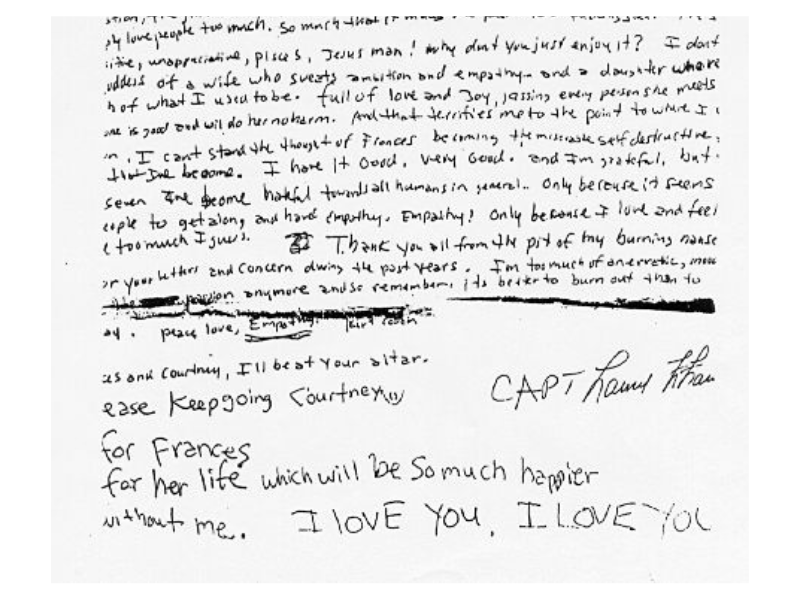 ly love people too much. So much that it
itive, unappreciative, pisces, Jesus man! why dont you just enjoy it? I dont
oddess of a wife who sweats ambition and empathy. and a daughter who re
h of what I used to be. full of love and Joy, every person she meets
one is good and will do her no harm. And that terrifies me to the point to where I
I cant stand the thought of Frances becoming the miserable self destructive,
that Ive become. I have it Good. very Good. and I'm grateful, but
seven Ive become hateful towards all humans in general.. only because it seems
eople to get along and have empathy. Empathy! Only because I love and feel
e too much I guess. Thank you all from the pit of my burning
or your letters and concern during the past years. I'm too much of an erratic,
anymore and so remember, its better to burn out than to
ay. peace love, Empathy.
es and Courtney, I'll be at your altar.
ease Keep going Courtney
CAPT
for Frances
for her life which will be So much happier
without me. I LOVE YOU, I LOVE YOU